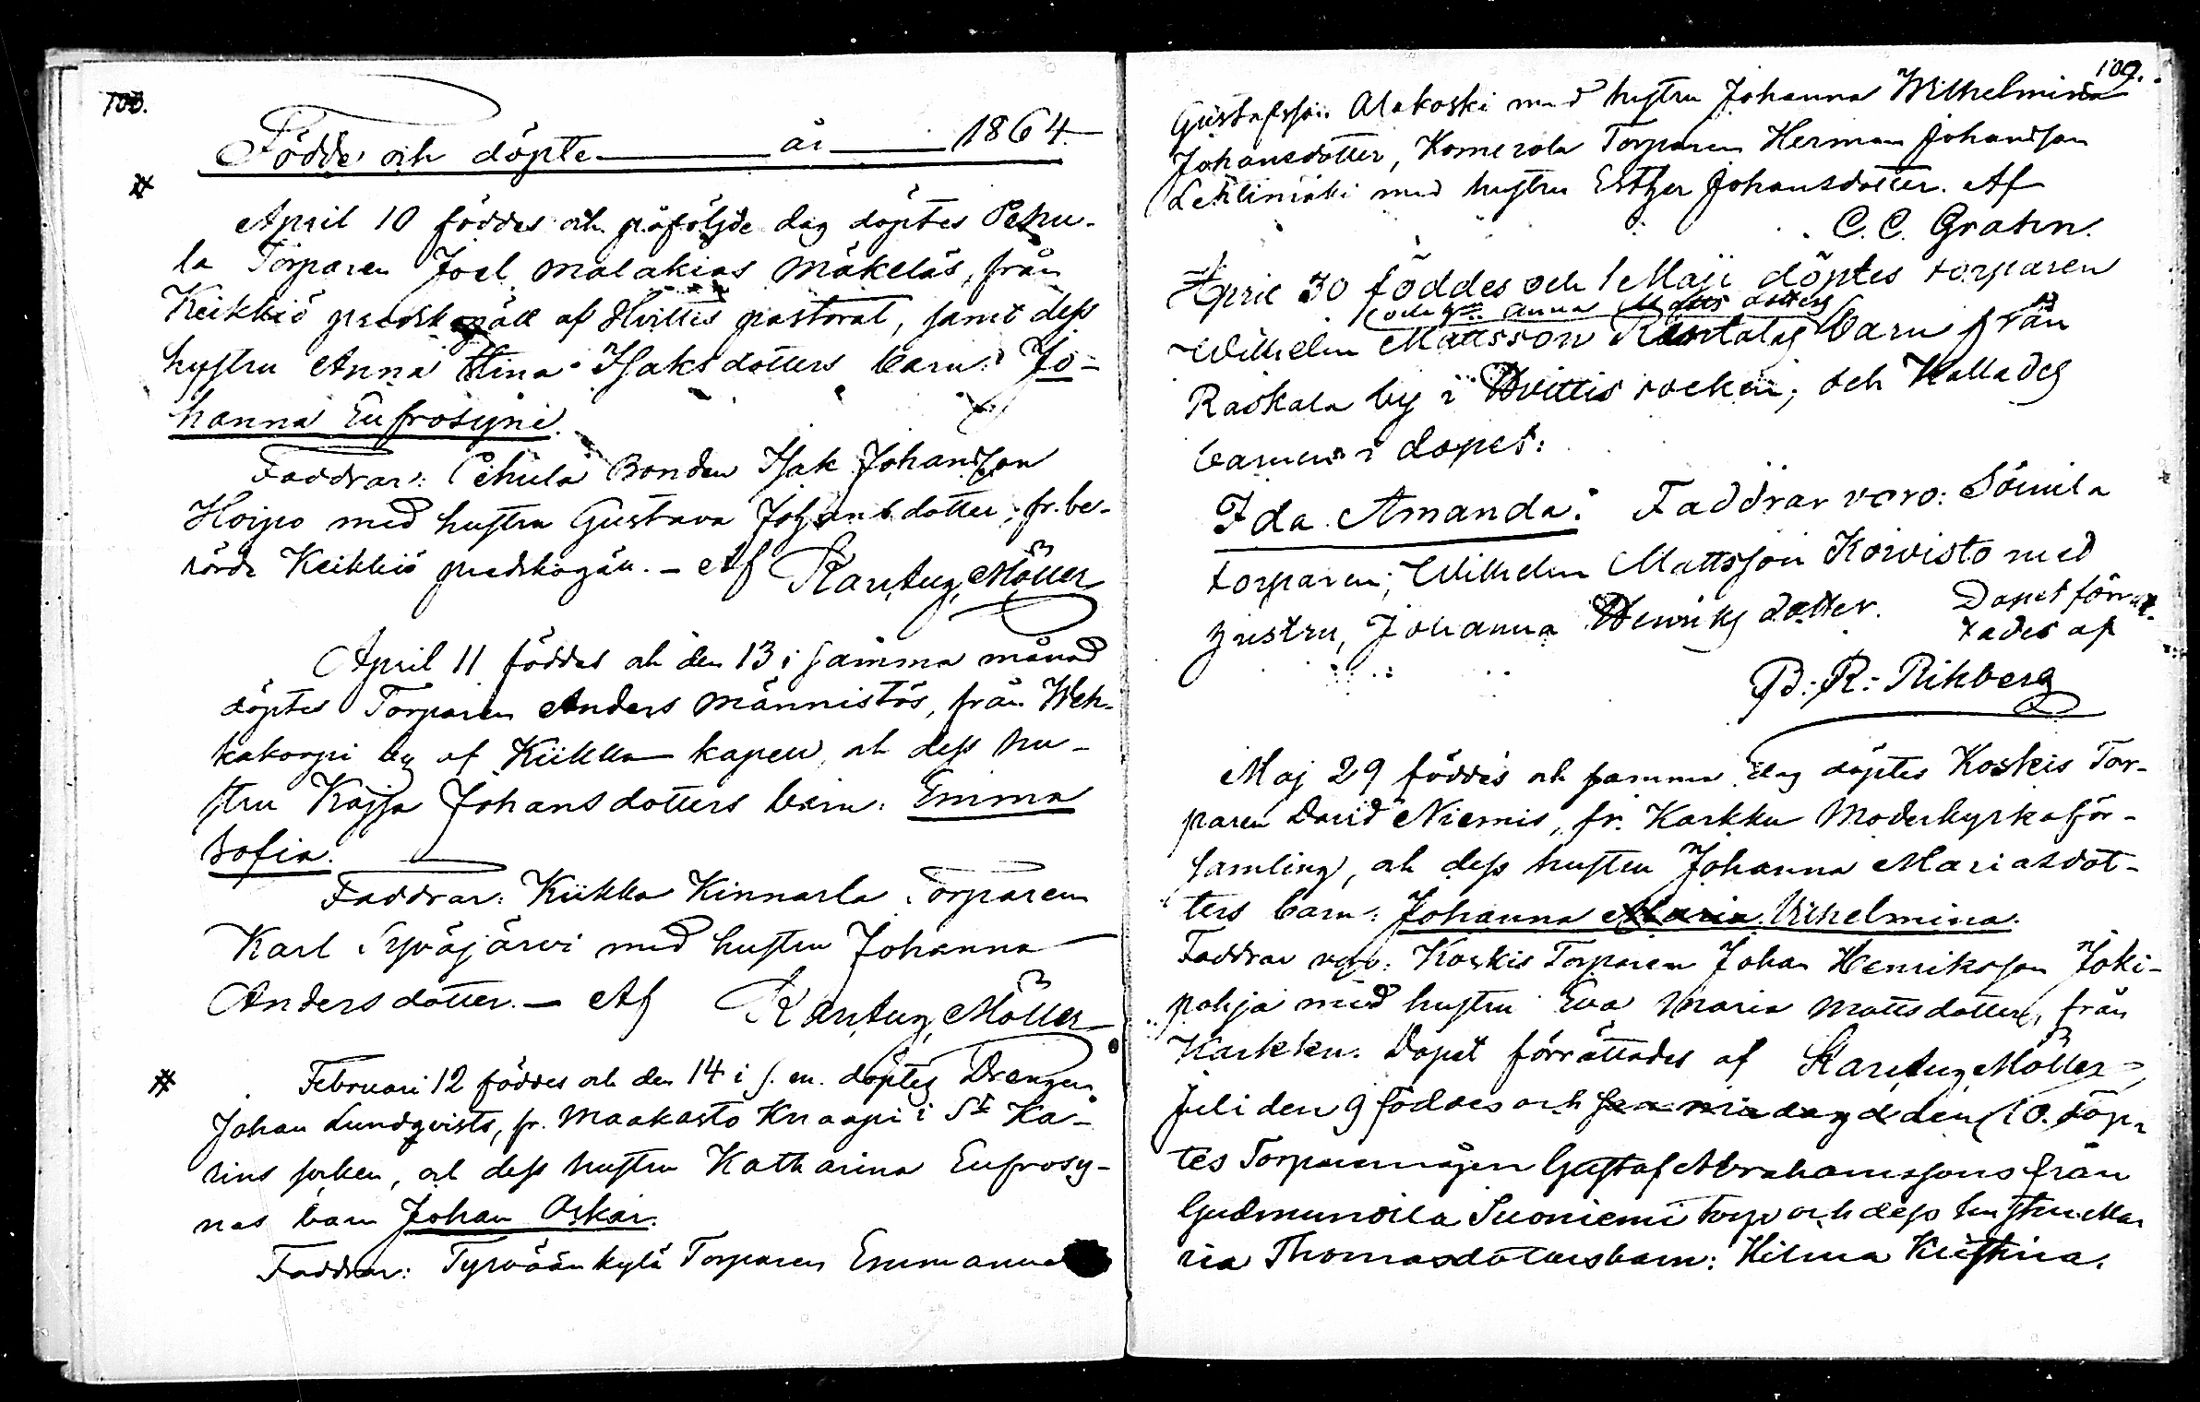 108.
Födde och döpte år 1864.
April 10 föddes och påföljde dag döptes Pehu-
la Torparen Joel Malakias Mäkeläs, från
Keikkiö predikogäll af Hvittis pastorat, samt dess
hustru Anna Stina Isaksdotters barn: Jo-
hanna Eufrosyne.
Faddrar: Pehula Bonden Isak Johansson
Hoipo med hustru Gustava Johansdotter, fr. be-
rörde Keikkiö predikogäll. – Af Karl Aug. Möller
April 11 föddes och den 13 i samma månad
döptes Torparen Anders Männistös, från Weh-
kakorpi by af Kiikka kapell, och dess hu-
stru Kajsa Johansdotters barn: Emma
Sofia.
Faddrar: Kiikka Kinnarla Torparen
Karl Syväjärvi med hustru Johanna
Andersdotter. – Af Karl Aug. Möller
Februari 12 föddes och den 14 i s. m. döptes Drengen
Johan Lundqvists, fr. Maakasto Knaapi i St Ka-
rins socken, och dess hustru Katharina Eufrosy-
nas barn Johan Oskar.
Faddrar: Tyrväänkylä Torparen Emmanuel
109.
Gustafsson Alakoski med hustru Johanna Wilhelmina
Johansdotter, Komerola Torparen Herman Johansson
Lehtimäki med hustru Esther Johansdotter. Af
C. C. Gratin.
April 30 föddes och 1 Maji döptes torparen
och Anna Matts dotters
Wilhelm Mattsson Rantalas barn från
Raskala by i Hvittis socken; och kallades
barnet i dopet:
Ida Amanda. Faddrar voro: Soinila
torparen; Wilhelm Mattsson Koivisto med
hustru, Johanna Henriks dotter. Dopet förrät-
tades af
B. R. Rikberg
Maj 29 föddes och samma dag döptes Koskis Tor-
paren David Niemis, fr. Karkku Moderkyrkoför-
samling, och dess hustru Johanna Mariasdot-
ters barn: Johanna Maria Vilhelmina.
Faddrar voro: Koskis Torparen Johan Henriksson Joki-
pohja med hustru Eva Maria Mattsdotter, från
Karkku. Dopet förrättades af Karl Aug. Möller
Juli den 9 föddes och samma dag d den 10. döp-
tes Torparemågen Gustaf Abrahamssons från
Gudmundila Suoniemi torp och dess hustru Ma
ria Thomasdotters barn: Hilma Kristina.